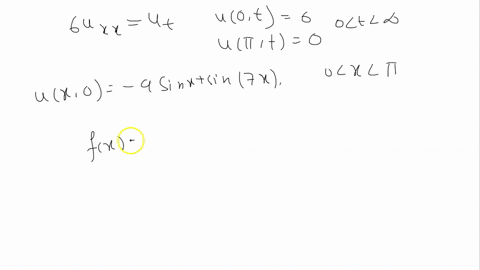 6u_xx = u_t u(0,t) = 6 0<t<∞
u(π,t) = 0
u(x,0) = -9 sinx+sin(7x), 0<x<π
f(x) -